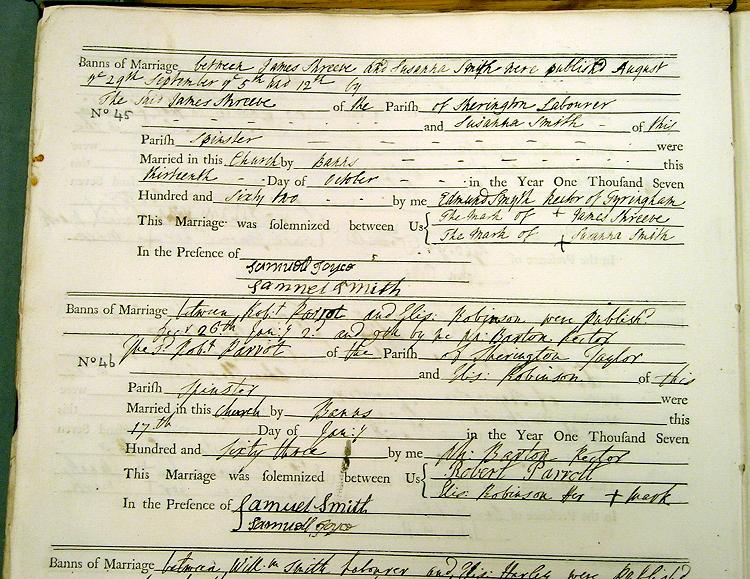 Banns of Marriage between James Shreeve and Susanna Smith were publish'd August
ye 29th September ye 5th and 12th by
The Said James Shreeve of the Parish of Sherington Labourer
No 45
and Susanna Smith of this
Parish Spinster were
Married in this Church by Banns this
thirteenth Day of October in the Year One Thousand Seven
Hundred and Sixty two by me Edmund Smyth Rector of Tyringham
This Marriage was solemnized between Us The Mark of + James Shreeve
The Mark of + Susanna Smith
In the Presence of
Samuell Joyce
Samuel Smith
Banns of Marriage between Robt Parrot and Eliz: Robinson were publish'd
Decr 26th Jan:y 2d and 9th by me Barton Rector
The sd Robt Parrot of the Parish of Sherington Taylor
No 46
and Eliz: Robinson of this
Parish Spinster were
Married in this Church by Banns this
17th Day of Jan:y in the Year One Thousand Seven
Hundred and Sixty three by me Barton Rector
This Marriage was solemnized between Us Robert Parrott
Eliz: Robinson her + mark
In the Presence of Samuel Smith
Samuell Joyce
Banns of Marriage between Will:m Smith Labourer and Eliz: Harley were publish'd